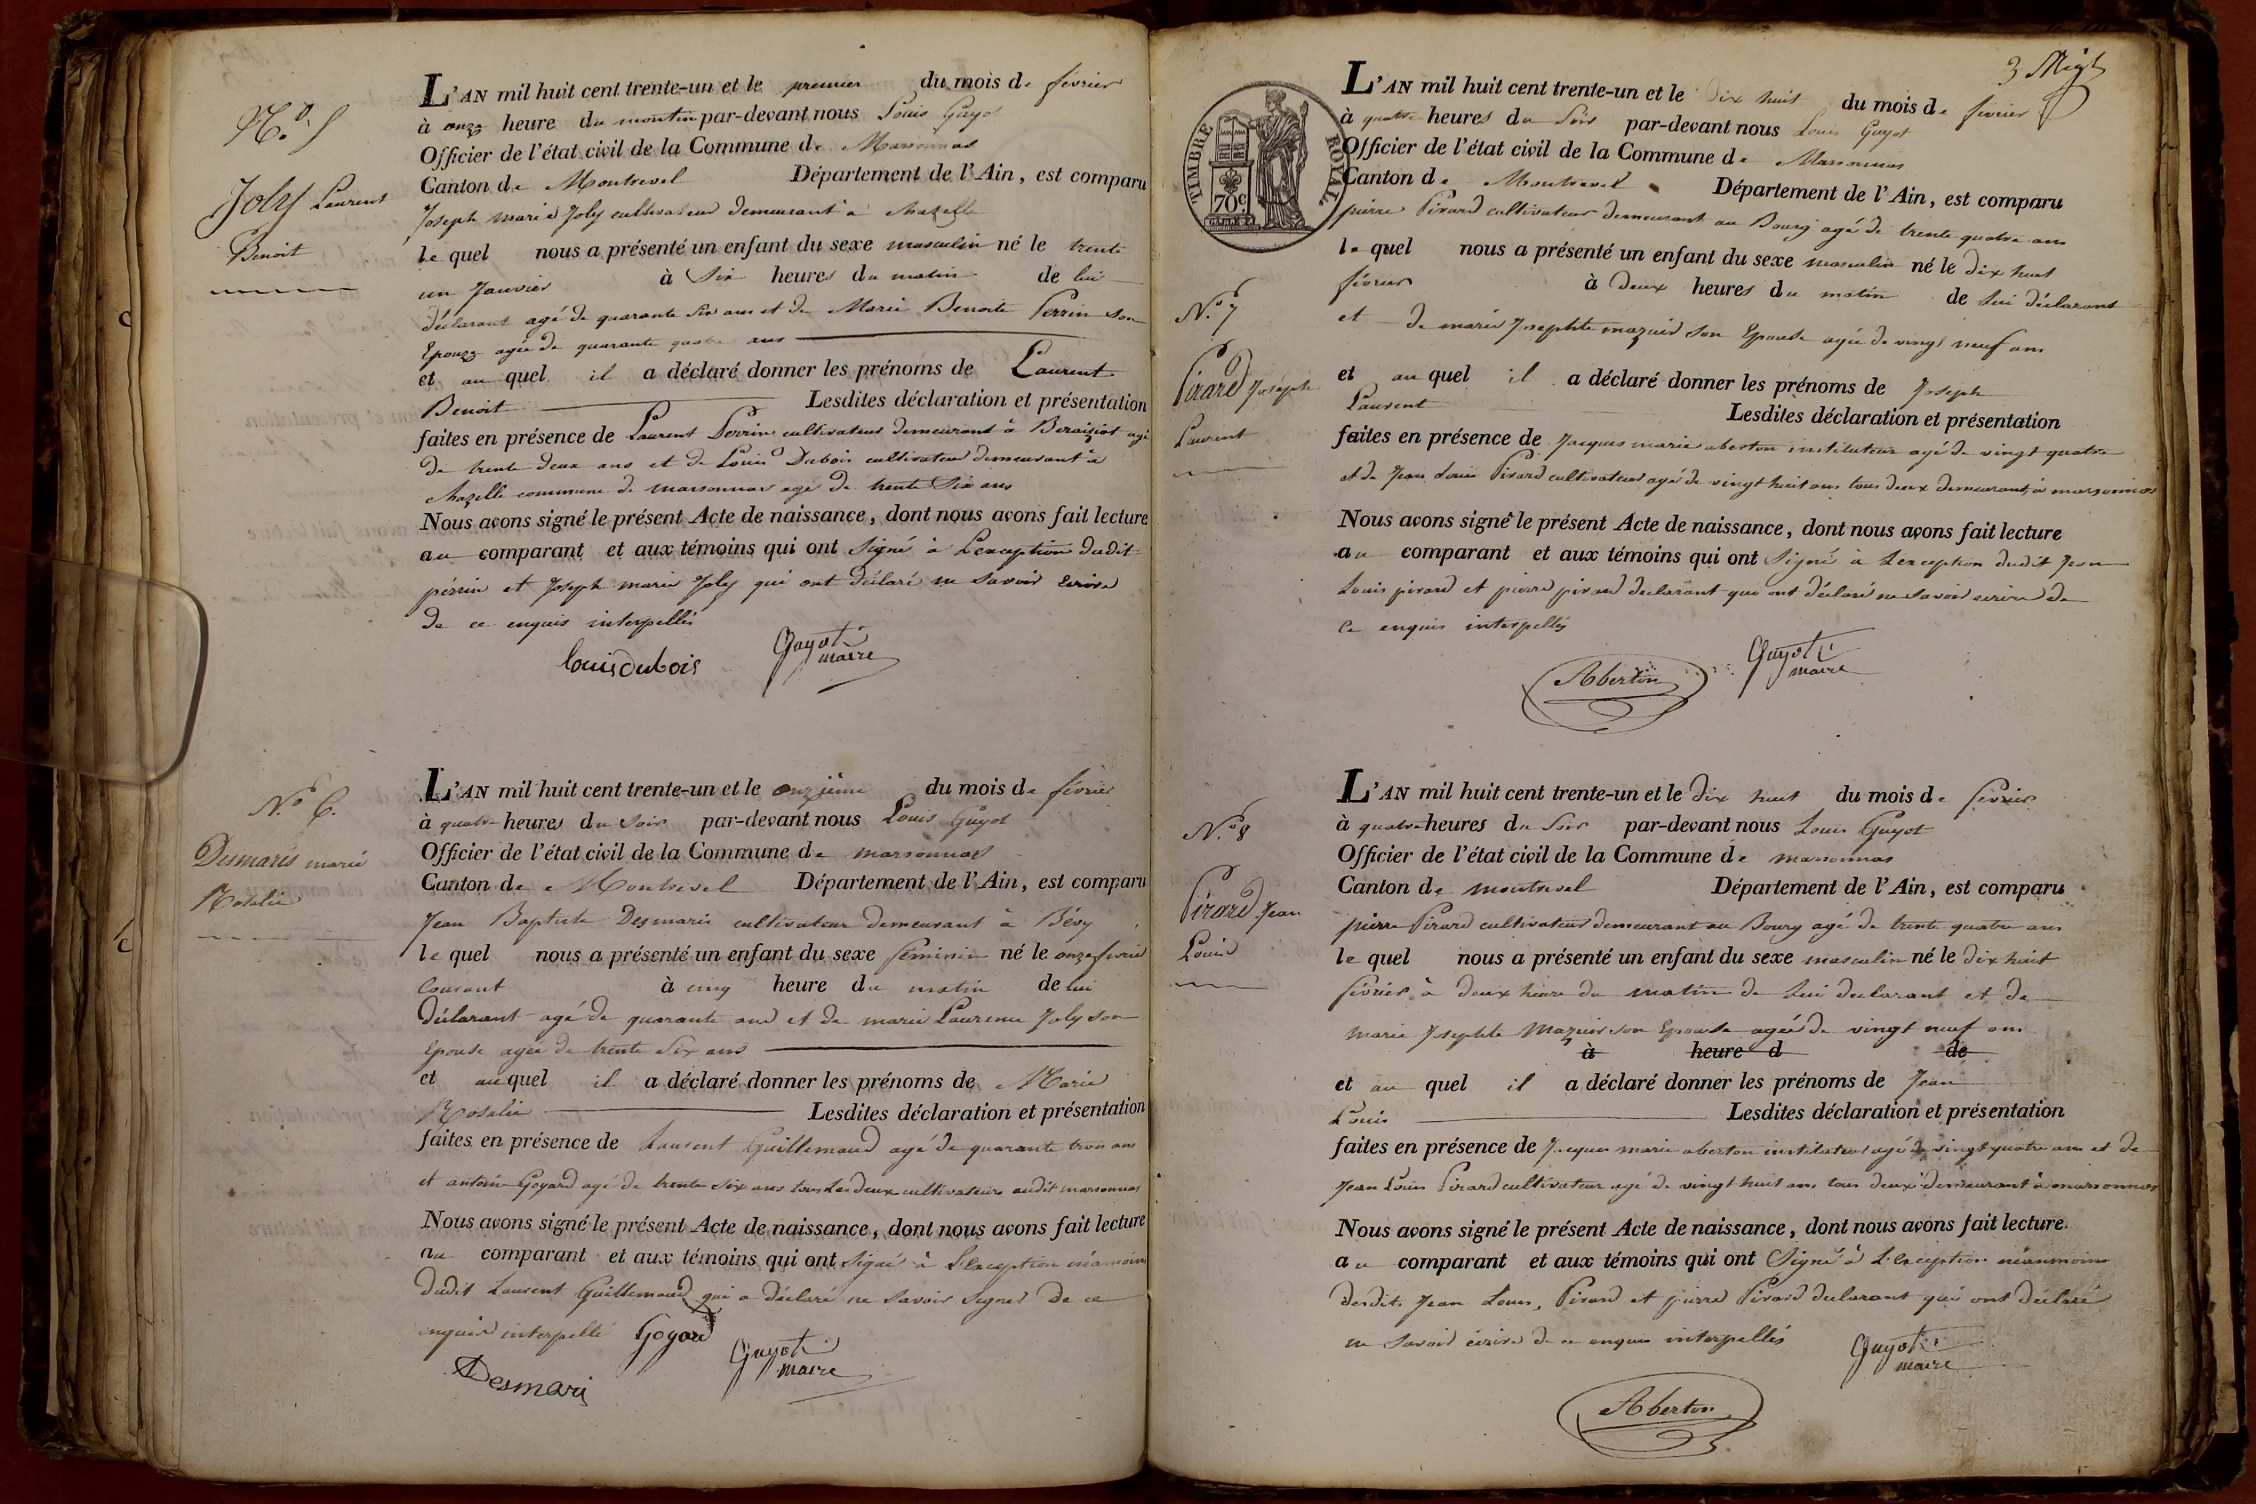 N.º 5
Joly Laurent
Benoit
L'AN mil huit cent trente-un et le premier du mois de février
à onze heure du mentin par-devant nous Louis Guyot
Officier de l'état civil de la Commune de Marsonnas
Canton de Montrevel Département de l'Ain, est comparu
Joseph marie Joly cultivateur demeurant à chazelle
le quel nous a présenté un enfant du sexe masculin né le trente
un Janvier à Six heures du matin de lui
déclarant agé de quarante six ans et de Marie Benoite Perrin son
Epouze agée de quarante quatre ans
et au quel il a déclaré donner les prénoms de Laurent
Benoit Lesdites déclaration et présentation
faites en présence de Laurent Perrin cultivateur demeurant à Beraiziat agé
de trente deux ans et de Louis Dubois cultivateur demeurant à
chazelle commune de marsonnas agé de trente Six ans
Nous avons signé le présent Acte de naissance, dont nous avons fait lecture
au comparant et aux témoins qui ont Signé à L'exception dudit
péririn et Joseph marie Joly qui ont déclaré ne Savoir Ecrire
de ce enquis interpellés
Louis Dubois Guyot
maire
N.º 6.
Desmaris marie
Rosalie
L'AN mil huit cent trente-un et le onzieme du mois de février
à quatre heures du Soir par-devant nous Louis Guyot
Officier de l'état civil de la Commune de marsonnas
Canton de Montrevel Département de l'Ain, est comparu
Jean Baptiste Desmaris cultivateur demeurant à Bévy
le quel nous a présenté un enfant du sexe féminin né le onze fevrier
Courant à cinq heure du matin de lui
Déclarant agé de quarante ans et de marie Laurence Joly son
Epouse agée de trente Six ans
et au quel il a déclaré donner les prénoms de Marie
Rosalie Lesdites déclaration et présentation
faites en présence de Laurent Guillemaud agé de quarante trois ans
et antoine Goyard agé de trente six ans tous Les deux cultivateurs audit marsonnas
Nous avons signé le présent Acte de naissance, dont nous avons fait lecture
au comparant et aux témoins qui ont Signé à L'exception néanmoins
dudit Laurent Guillemaud qui a déclaré ne Savoir Signer de ce
enquis interpellé Goyard Guyot
maire
Desmaris
3
TIMBRE ROYAL
70 c.
N.º 7
Pirard Joseph
Laurent
L'AN mil huit cent trente-un et le Dix huit du mois de février
à quatre heures du Soir par-devant nous Louis Guyot
Officier de l'état civil de la Commune de Marsonnas
Canton de Montrevel Département de l'Ain, est comparu
pierre Pirard cultivateur demeurant au Bourg agé de trente quatre ans
le quel nous a présenté un enfant du sexe masculin né le dix huit
février à deux heures du matin de lui déclarant
et de marie Josephte mazuir son Epouse agée de vingt neuf ans
et au quel il a déclaré donner les prénoms de Joseph
Laurent Lesdites déclaration et présentation
faites en présence de Jacques marie aberton instituteur agé de vingt quatre
et de Jean Louis Pirard cultivateur agé de vingt huit ans tous deux demeurant à marsonnas
Nous avons signé le présent Acte de naissance, dont nous avons fait lecture
au comparant et aux témoins qui ont Signé à L'exception dudit Jean
Louis pirard et pierre pirard declarant qui ont déclaré ne Savoir ecrire de
Ce enquis interpellés
Aberton Guyot
maire
N.º 8
Pirard Jean
Louis
L'AN mil huit cent trente-un et le Dix huit du mois de fevrier
à quatre heures du Soir par-devant nous Louis Guyot
Officier de l'état civil de la Commune de marsonnas
Canton de montrevel Département de l'Ain, est comparu
pierre Pirard cultivateur demeurant au Bourg agé de trente quatre ans
le quel nous a présenté un enfant du sexe masculin né le dix huit
février à deux heure du matin de lui declarant et de
marie Josephte Mazuir son Epouse agée de vingt neuf ans
à heure d de
et au quel il a déclaré donner les prénoms de Jean
Louis Lesdites déclaration et présentation
faites en présence de Jacques marie aberton instituteur agé de vingt quatre ans et de
Jean Louis Pirard cultivateur agé de vingt huit ans tous deux demeurant à marsonnas
Nous avons signé le présent Acte de naissance, dont nous avons fait lecture
au comparant et aux témoins qui ont Signé à L'exception néanmoins
desdits Jean Louis Pirard et pierre Pirard declarant qui ont déclaré
ne Savoir écrire de ce enquis interpellés
Guyot
maire
Aberton